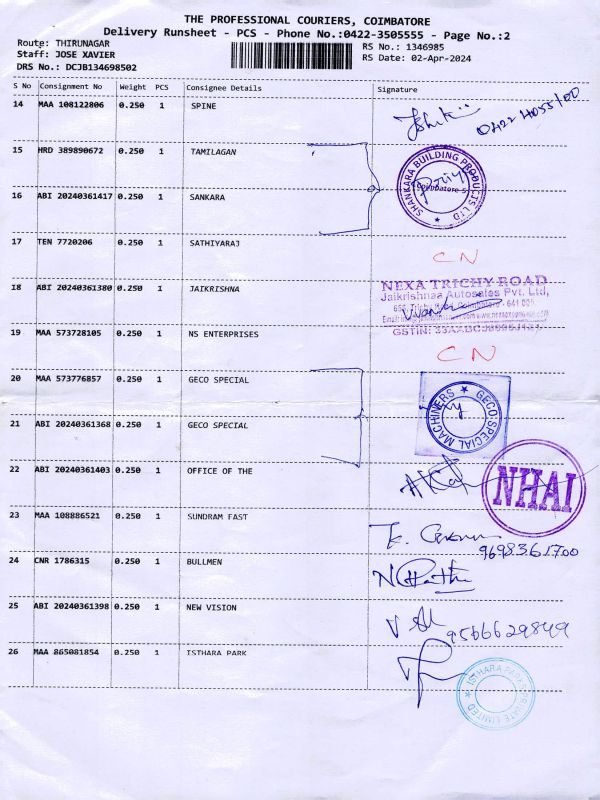 THE PROFESSIONAL COURIERS, COIMBATORE
Delivery Runsheet - PCS - Phone No.:0422-3505555 - Page No.:2
Route: THIRUNAGAR
RS No.: 1346985
Staff: JOSE XAVIER
RS Date: 02-Apr-2024
DRS No.: DCJB134698502
S No Consignment No Weight PCS Consignee Details Signature
14 MAA 108122806 0.250 1 SPINE
15 HRD 389890672 0.250 1 TAMILAGAN
SHANKARA BUILDING PRODUCTS LTD
Coimbatore-5
16 ABI 20240361417 0.250 1 SANKARA
17 TEN 7720206 0.250 1 SATHIYARAJ
CN
18 ABI 20240361380 0.250 1 JAIKRISHNA
NEXA TRICHY ROAD
Jaikrishnaa Autosales Pvt. Ltd,
Coimbatore - 641 005.
19 MAA 573728105 0.250 1 NS ENTERPRISES
CN
20 MAA 573776857 0.250 1 GECO SPECIAL
GECO SPECIAL MACHINERS
21 ABI 20240361368 0.250 1 GECO SPECIAL
22 ABI 20240361403 0.250 1 OFFICE OF THE
NHAI
23 MAA 108886521 0.250 1 SUNDRAM FAST
9698361700
24 CNR 1786315 0.250 1 BULLMEN
25 ABI 20240361398 0.250 1 NEW VISION
9566629849
26 MAA 865081854 0.250 1 ISTHARA PARK
ISTHARA PARKS PRIVATE LIMITED